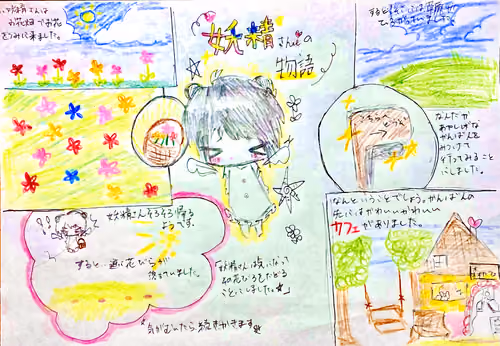 妖精さんの
物語
妖精さんは
お花畑でお花を
つみに来ました。
妖精さんそろそろ帰る
ようです。
すると…道に花びらが
落ちていました。
「妖精さんは気になって
その花びらをたどる
ことにしました。★」
「気がむいたら続きかきます
すると
なんだか
あやしげな
かんばんを
みつけて
行ってみること
にしました。
なんということでしょう。かんばんの
先にはかわいいかわいい
カフェがありました。